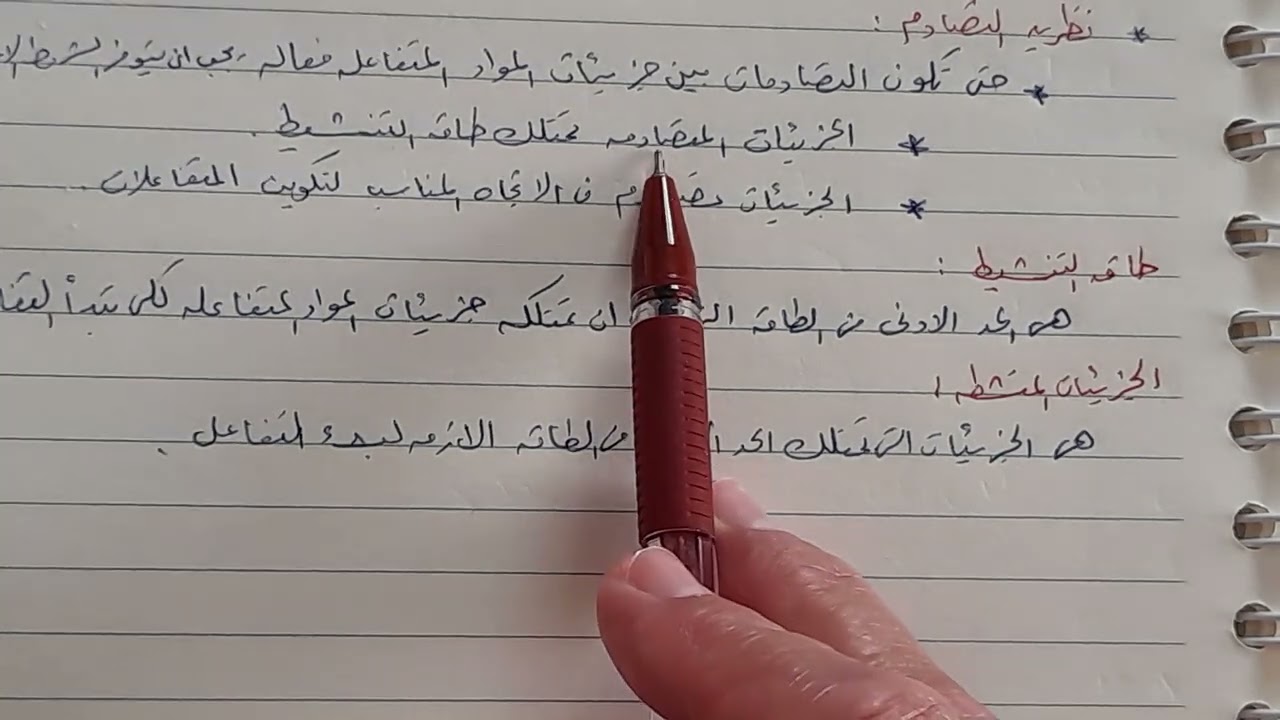 * نظريه التصادم :
* حتى تكون التصادمات بين جزيئات المواد المتفاعله فعاله يجب ان يتوفر الشرط
* الجزيئات المتصادمه تمتلك طاقه التنشيط .
* الجزيئات الاتجاه المناسب لتكوين المتفاعلات .
طاقه التنشيط :
هي الحد الادنى من الطاقه ان تمتلكه جزيئات المواد المتفاعله لكي تبدأ
الجزيئات المنشطه :
هي الجزيئات التي تمتلك الحد من الطاقه الازمه لبدء التفاعل .